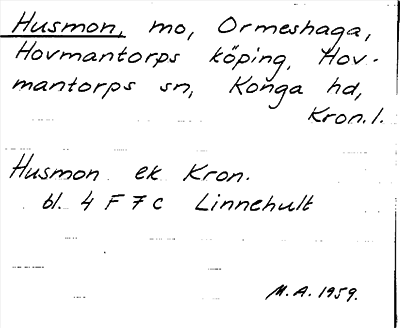 Husmon, mo, Ormeshaga,
Hovmantorps köping, Hov-
mantorps sn, Konga hd,
Kron. l.
Husmon ek Kron.
bl. 4 F 7 c Linnehult
M.A. 1959.